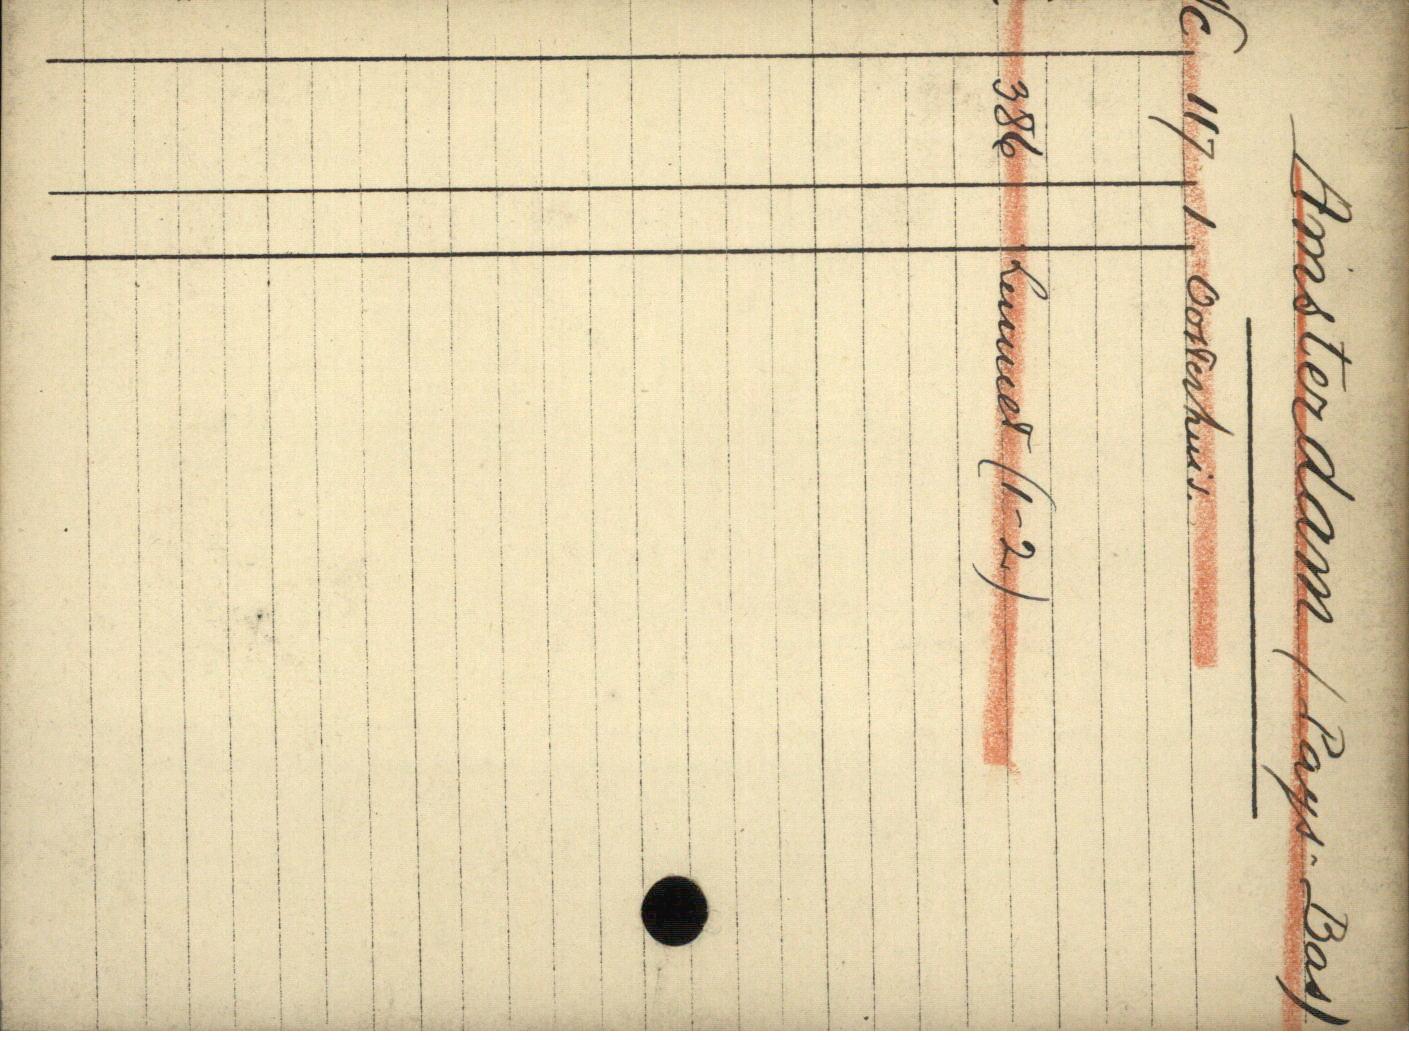 Amsterdam (Pays-Bas)
c 117 1 Oosterhuis.
386 (1-2)